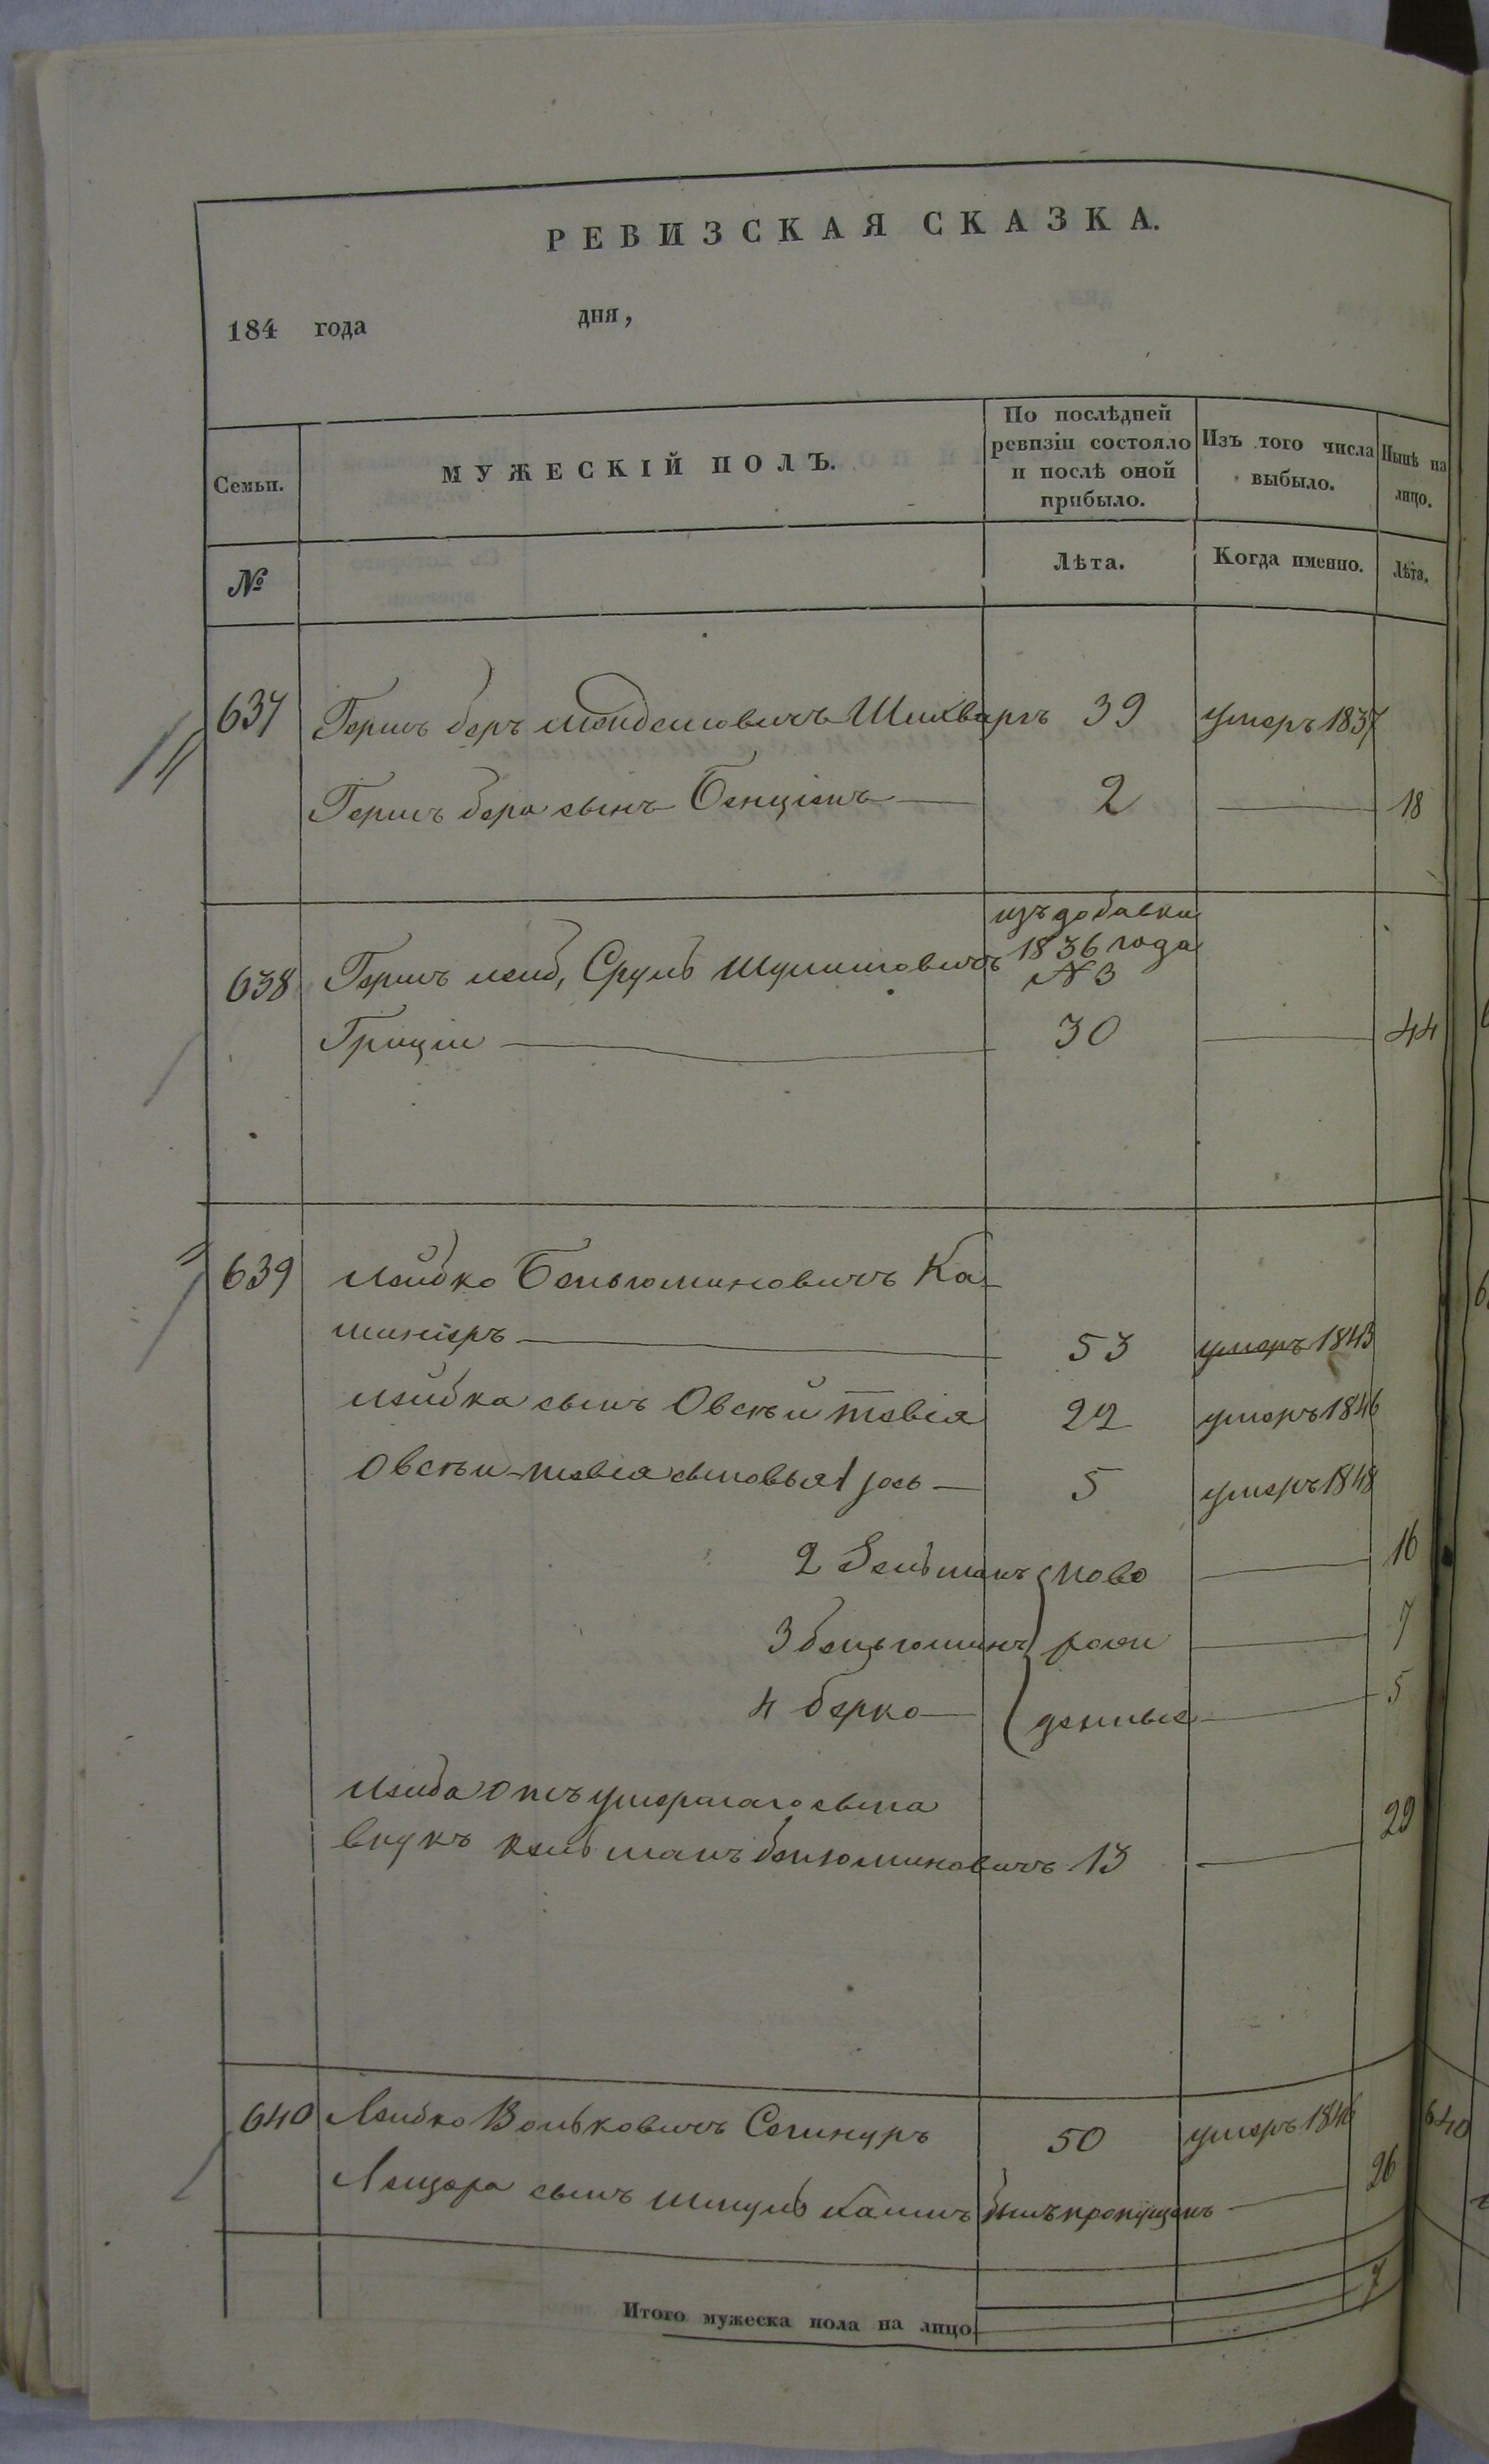 РЕВИЗСКАЯ СКАЗКА.
184 года дня,
Семьи. МУЖЕСКІЙ ПОЛЪ. По послѣдней ревизіи состояло и послѣ оной прибыло. Изъ того числа выбыло. Нынѣ на лицо.
№ Лѣта. Когда именно. Лѣта.
637 Гершъ беръ Мендемовичъ Шихваргъ 39 умеръ 1837
Гершъ бера сынъ Бенціенъ 2 18
изъ добавки
638 Гершъ леиб, Сруль Шулимовичъ 1836 года
№ 3
Грицiи 30 44
639 Лейбко Беньюминовичъ Ка-
минiеръ 53 умеръ 1843
Лейбка сынъ Овсѣй тевiя 22 умеръ 1846
Овсѣи тевiя сыновья 1 Iось 5 умеръ 1848
2 Зельманъ ново 16
3 беньюминъ рож 7
4 берко денные 5
Лейба отъ умершаго сына
внукъ Кельманъ бенюминовичъ 13 29
640 Лейбко Вольковичъ Сегинуръ 50 умеръ 1846
сынъ Шмуль былъ пропущенъ 26
Итого мужеска пола на лицо 7
640